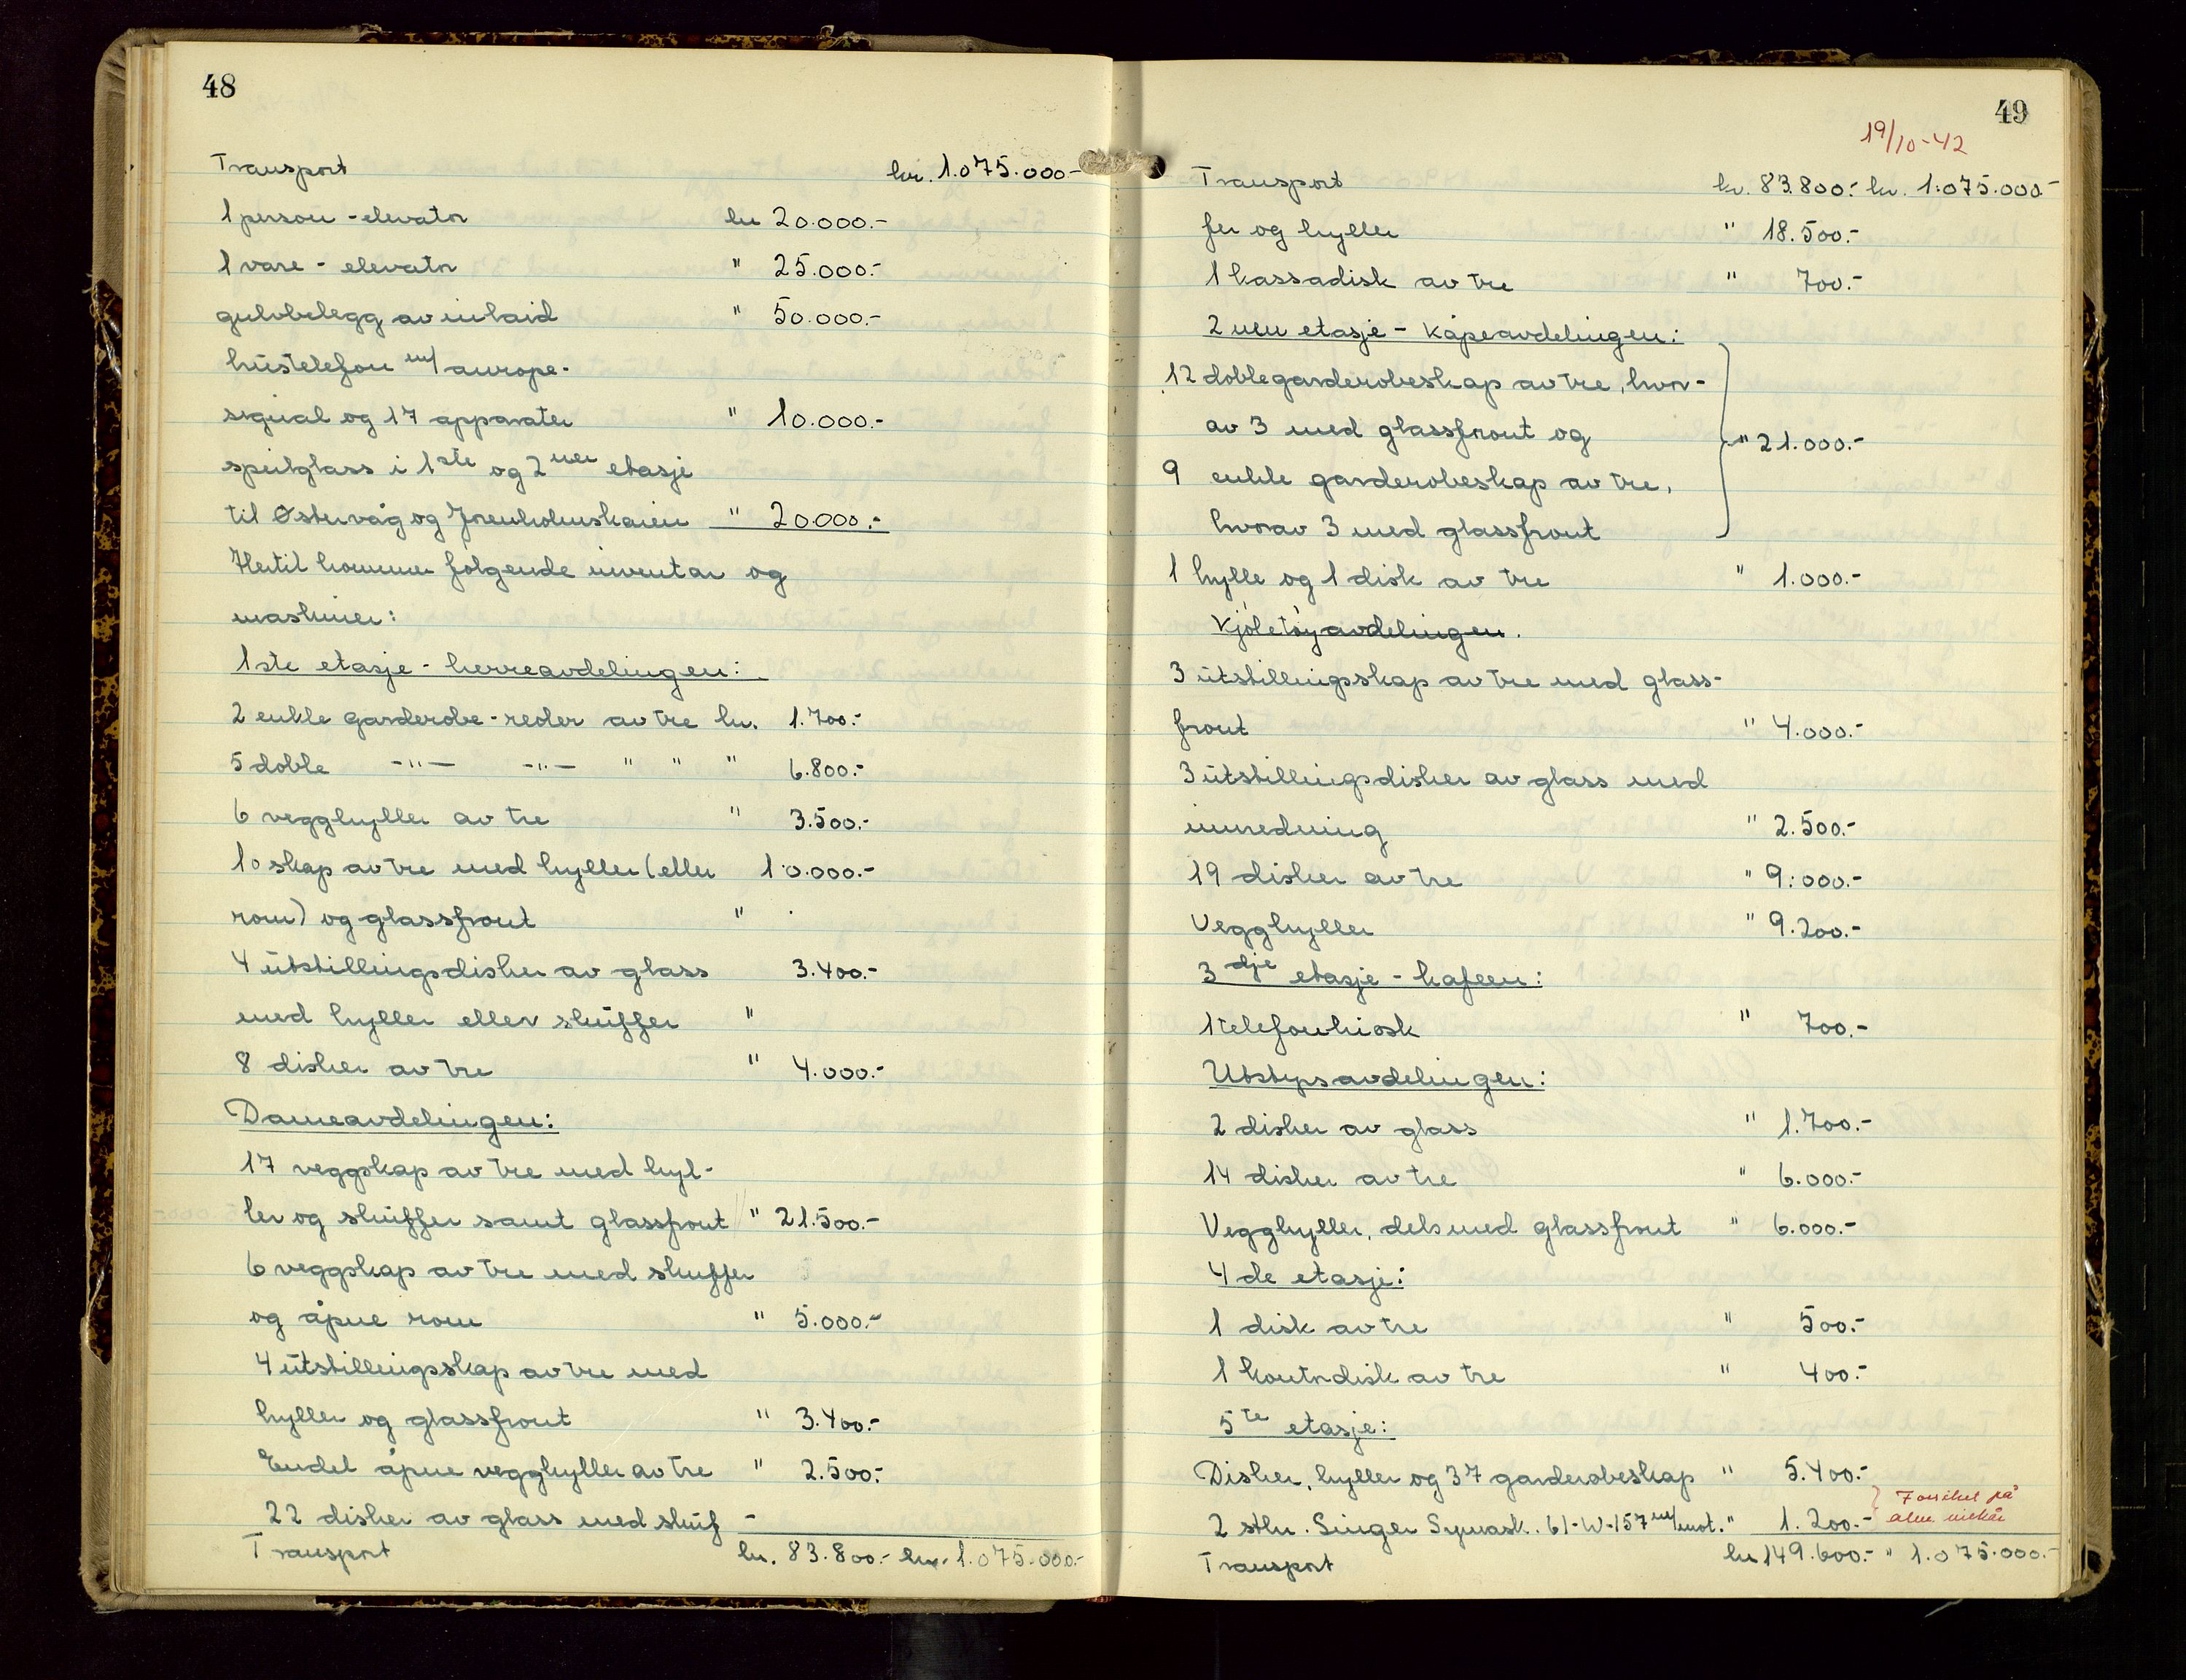 48
Transport kr. 1.075.000.-
1 person - elevator kr 20.000.-
1 vare - elevator " 25.000.-
gulvbelegg av inlaid " 50.000.-
hustelefon m/ anrope-
signal og 17 apparater " 10.000.-
speilglass i 1ste og 2nen etasje
til Østervåg og Jorenholmskaien " 20.000.-
Hertil kommer følgende inventar og
maskiner:
1ste etasje - herreavdelingen:
2 enkle garderobe-reoler av tre kr. 1.700.-
5 doble -"- -"- " " " 6.800.-
6 vegghyller av tre " 3.500.-
10 skap av tre med hyller (eller 10.000.-
rom) og glassfront "
4 utstillingsdisker av glass 3.400.-
med hyller eller skuffer "
8 disker av tre " 4.000.-
Dameavdelingen:
17 veggskap av tre med hyl-
ler og skuffer samt glassfront " 21.500.-
6 veggskap av tre med skuffer
og åpne rom " 5.000.-
4 utstillingsskap av tre med
hyller og glassfront " 3.400.-
Endel åpne vegghyller av tre " 2.500.-
22 disker av glass med skuf -
Transport kr. 83.800.- kr. 1.075.000.-
49
19/10-42
Transport kr. 83.800.- kr. 1.075.000.-
fer og hyller " 18.500.-
1 kassadisk av tre " 700.-
2nen etasje - Kåpeavdelingen:
12 doble garderobeskap av tre, hvor-
av 3 med glassfront og " 21.000.-
9 enkle garderobeskap av tre,
hvorav 3 med glassfront
1 hylle og 1 disk av tre " 1.000.-
Kjoletøyavdelingen.
3 utstillingsskap av tre med glass-
front " 4.000.-
3 utstillingsdisker av glass med
innredning " 2.500.-
19 disker av tre " 9.000.-
Vegghyller " 9.200.-
3dje etasje - kafeen:
1 telefonkiosk " 700.-
Utstyrsavdelingen:
2 disker av glass " 1.700.-
14 disker av tre " 6.000.-
Vegghyller, dels med glassfront " 6.000.-
4de etasje:
1 disk av tre " 500.-
1 kontordisk av tre " 400.-
5te etasje:
Disker, hyller og 37 garderobeskap " 5.400.-
2 stkr. Singer Symask. 61-W-157 m/mot. " 1.200.-
Transport kr 149.600.- " 1.075.000.-